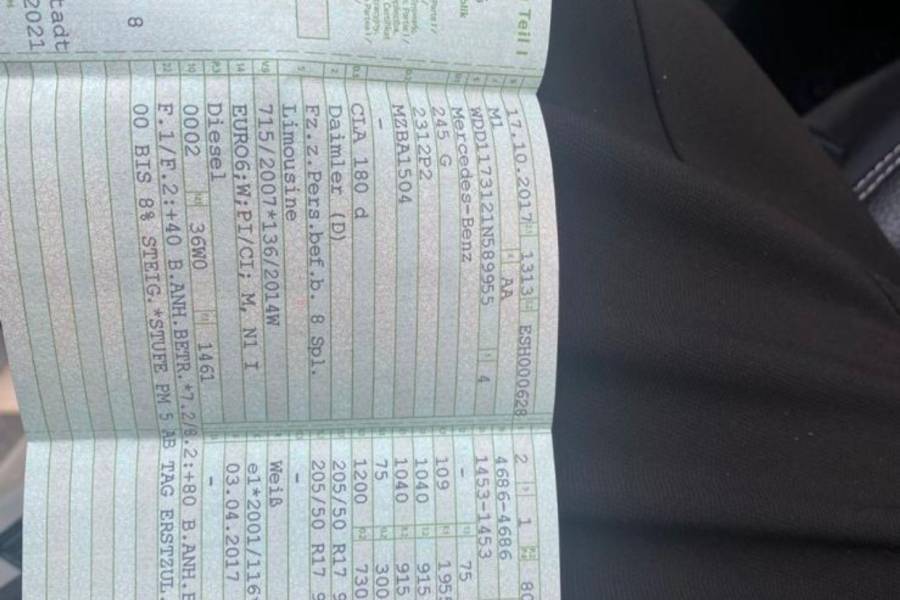 Teil I
8
tadt
2021
17.10.2017 1313 ESH000628
M1 AA
WDD1173121N589955 4
Mercedes-Benz
245 G
2312P2
MZBA1504
-
CLA 180 d
Daimler (D)
Fz.z.Pers.bef.b. 8 Spl.
Limousine
715/2007*136/2014W
EURO6;W;PI/CI; M, N1 I
Diesel
0002 36W0 1461
F.1/F.2:+40 B.ANH.BETR.*7.2/8.2:+80 B.ANH.B
00 BIS 8% STEIG. *STUFE PM 5 AB TAG ERSTZUL.
2 1 80
4686-4686
1453-1453
- 75
109 195
1040 915
1040 915
75 300
1200 730
205/50 R17 9
205/50 R17 9
-
Weiß
e1*2001/116*
03.04.2017
-